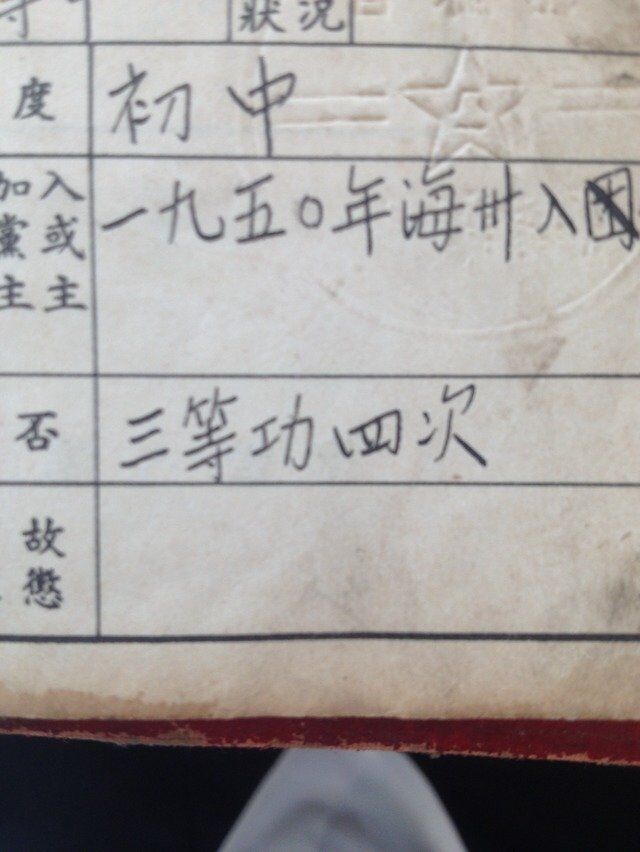 狀況
度 初中
加入 一九五〇年海卅入团
黨或
主主
否 三等功四次
故
懲